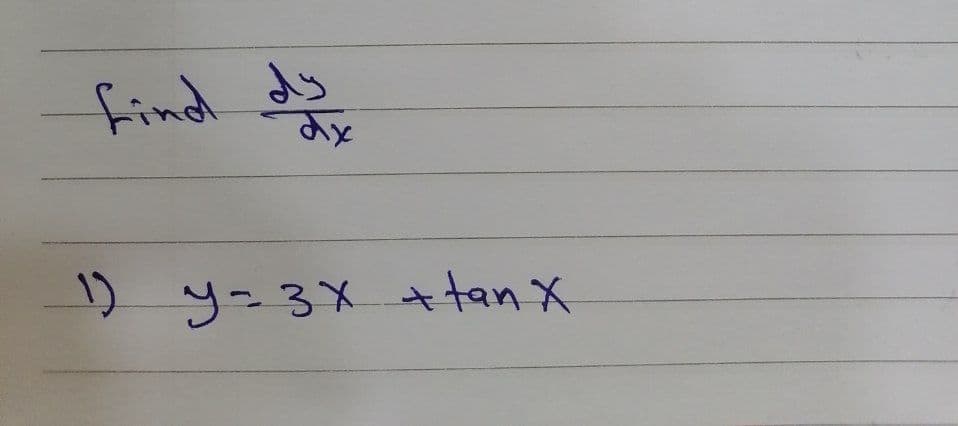 find dy/dx
1) y = 3x + tan x